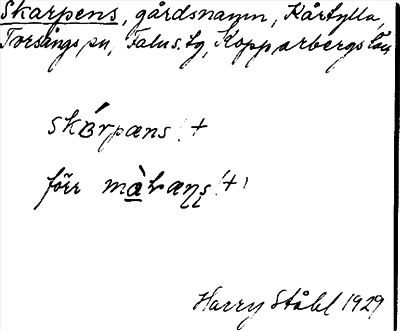 Skarpens, gårdsnamn, Kårtylla,
Torsångs sn, Falu s. tg, Kopparbergs län
skárpæns /+
förr màtæɳʂ /+
Harry Ståhl 1929